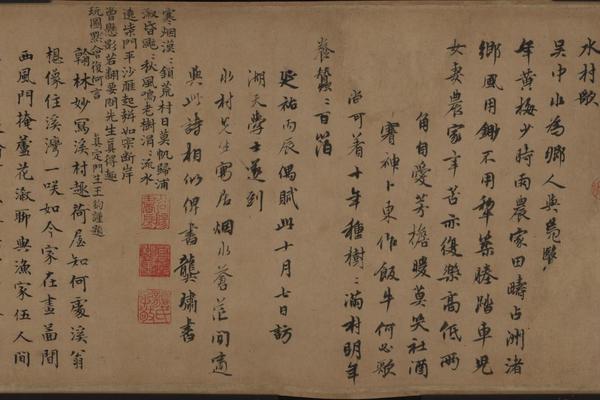 水村歌
吳中水為鄉人與鳧鷖
年黃梅少時雨農家田疇占洲渚
鄉風用鋤不用犂葉踏車兒
女妻農家辛苦亦復樂高低兩
角自愛芳檐暖莫笑社酒
賽神卜東作飯牛何必歌
尚可著十年種樹〻滿村明年
養蠶〻百箔
延祐丙辰偶賦此十月七日訪
湖天學士遂到
水村先生寓居烟水蒼茫間
與此詩相似俾書龔璛書
寒烟漠〻鎖荒村日莫帆歸浦
漵昏秋風鳴老樹涓〻流水
遠柴門平沙雁起斷岸
曾懸影若翻要問先生真得趣
玩圖默會復何言
真定門生王鈞謹題
翰林妙寫溪村趣荷屋知何處溪翁
想像住溪灣一咲如今家在畫圖間
西風門掩蘆花漵聊與漁家伍人間